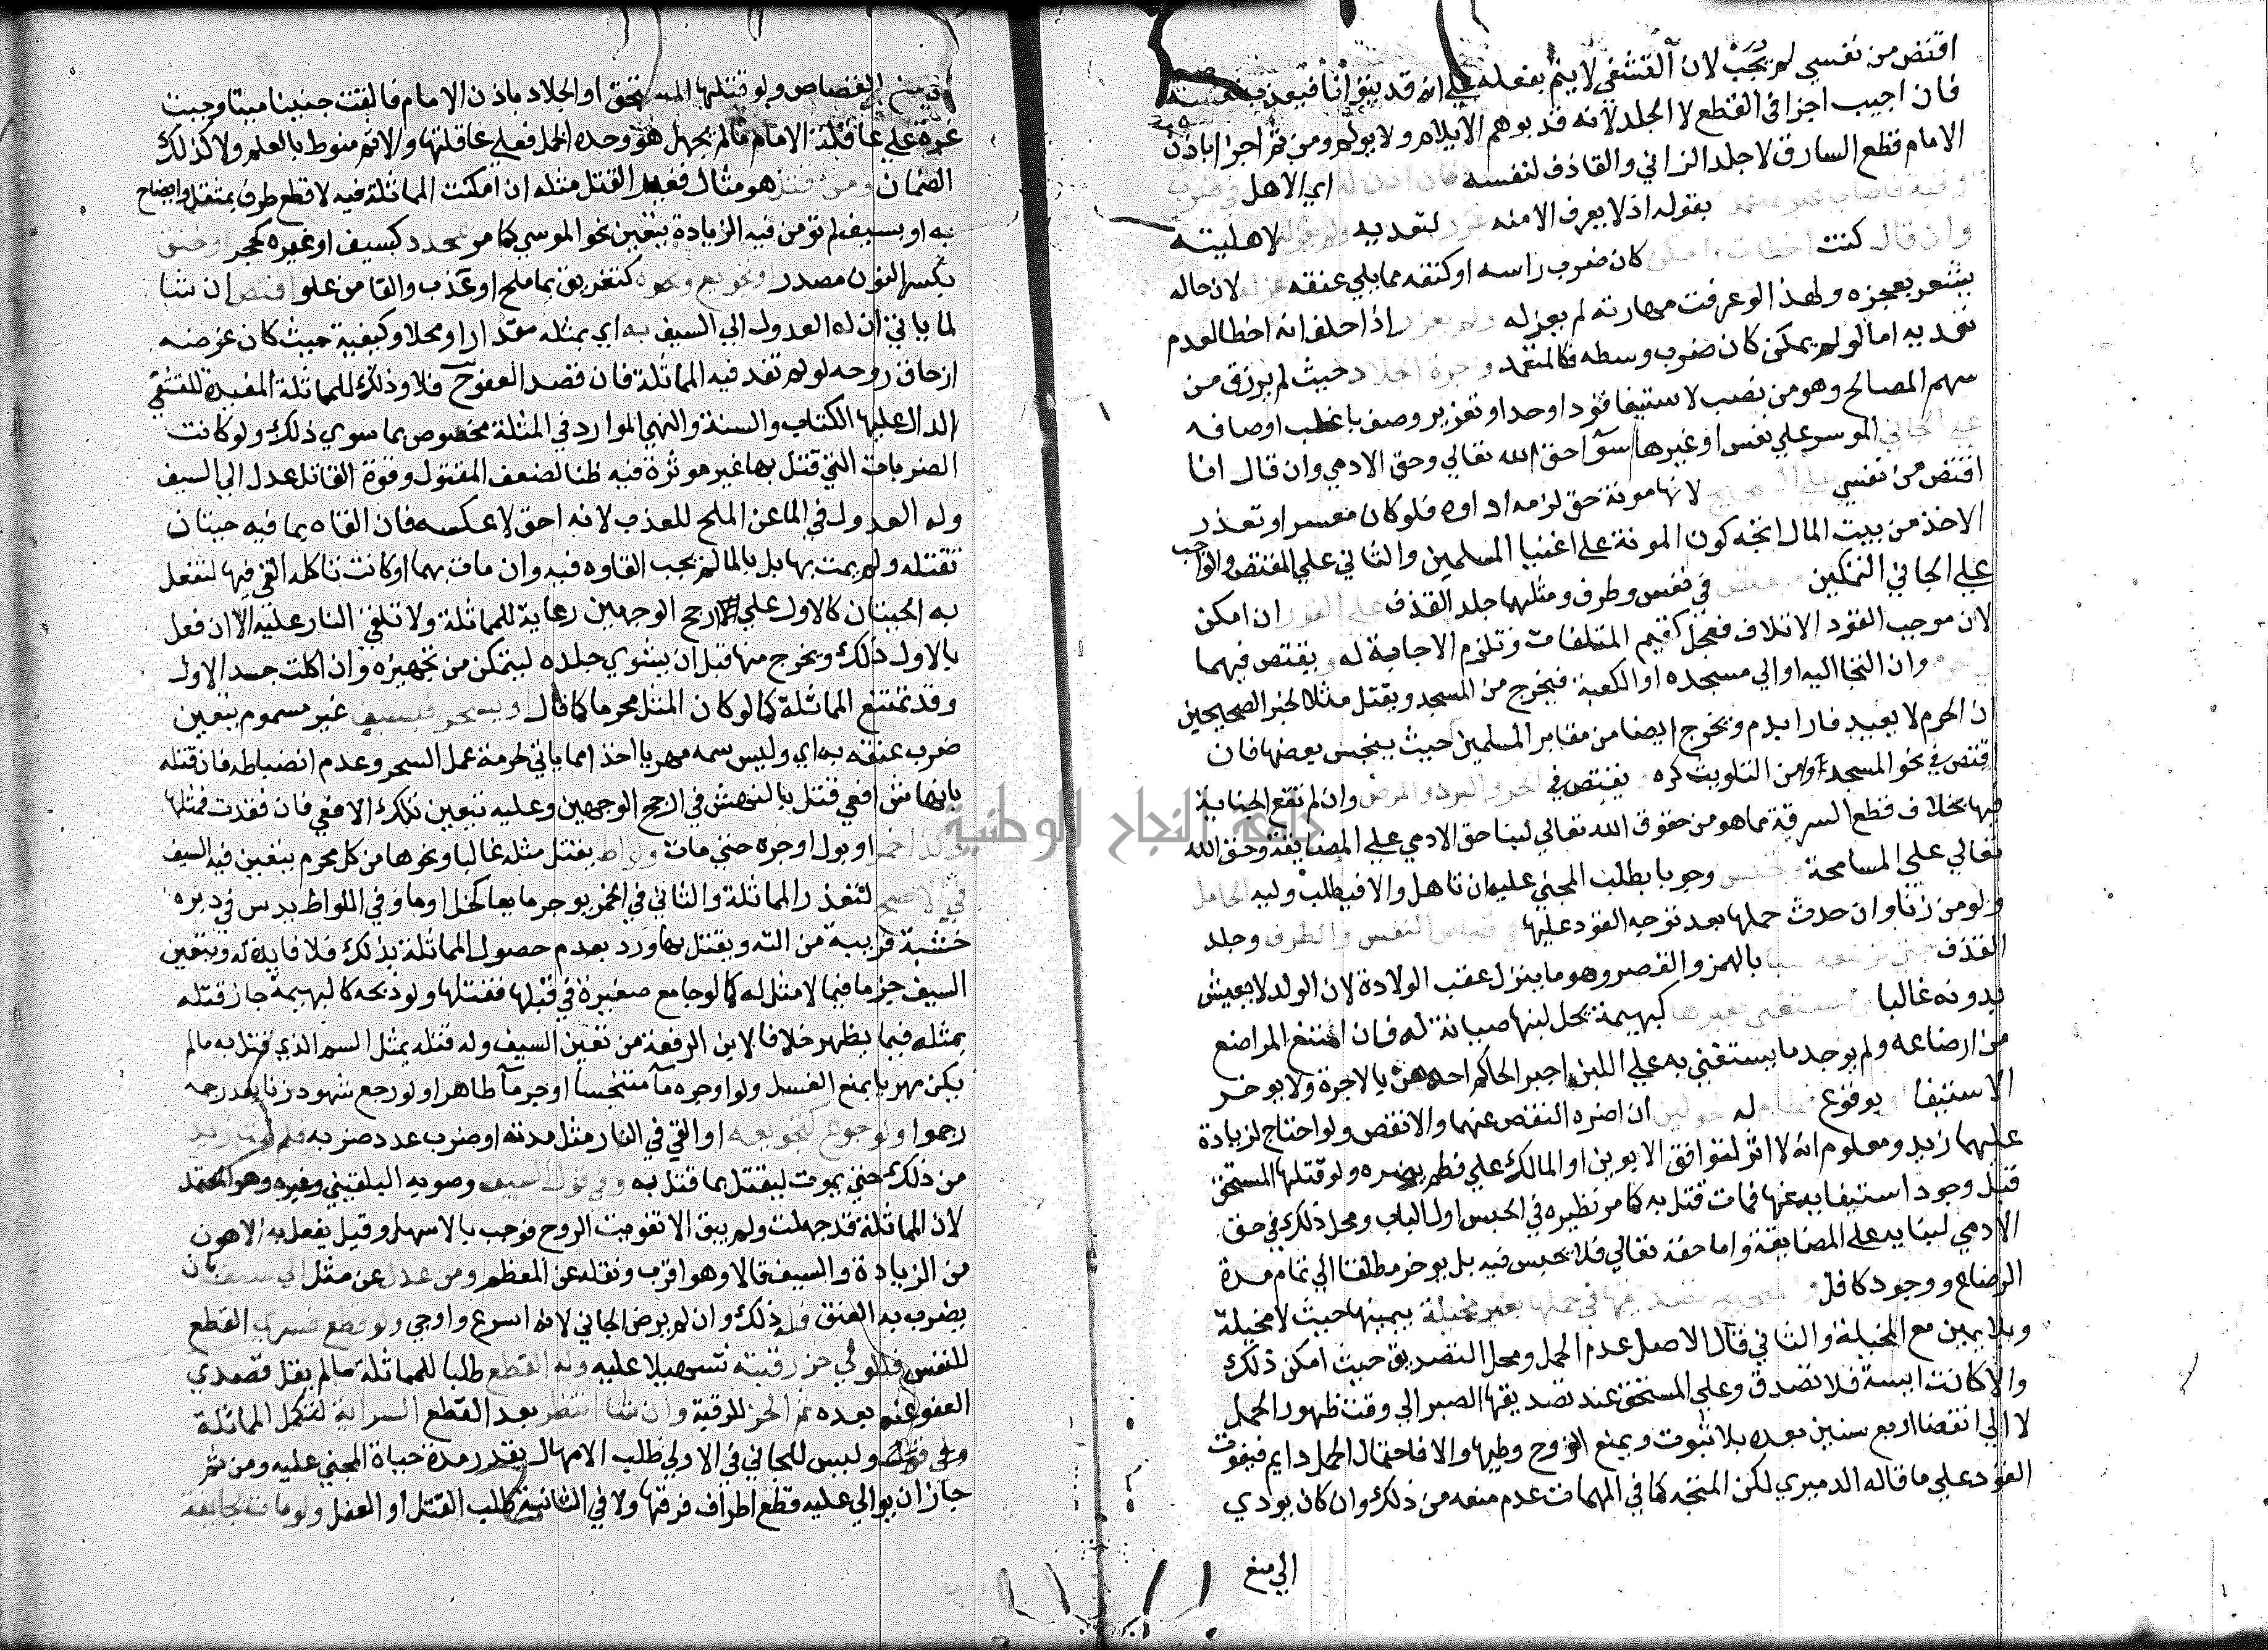 اقتص من نفسي لم يجب لان التشفي لا يتم بفعله علي انه قد يتوانا فيعذب نفسه
فان اجيب اجزا في القطع لا الجلد لانه قد يوهم الايلام ولا يولم ومن ثم اجزا باذن
الامام قطع السارق لا جلد الزاني والقاذف لنفسه فان اذن له اي الاهل في ضرب
رقبة فاصاب غيرها عمدا بقوله اذ لا يعرف الا منه عزر لتعديه ولم يعزله لاهليته
وان قال كنت اخطات وامكن كان ضرب راسه او كتفه مما يلي عنقه عزله لان حاله
يشعر بعجزه ولهذا لو عرفت مهارته لم يعزله ولم يعزر اذا حلف انه اخطا لعدم
تعديه اما لو لم يمكن كان ضرب وسطه فكالمتعمد واجرة الجلاد حيث لم يرزق من
سهم المصالح وهو من نصب لاستيفا قود او حد او تعزير وصف باغلب اوصافه
علي الجاني الموسر علي نفس او غيرها سوا حق الله تعالي وحق الادمي وان قال انا
اقتص من نفسي علي الصحيح لانها مونة حق لزمه اداوه فلو كان معسرا وتعذر
الاخذ من بيت المال اتجه كون المونة علي اغنيا المسلمين والثاني علي المقتص والواجب
علي الجاني التمكين ويقتص في نفس وطرف ومثلهما جلد القذف علي الفور ان امكن
لان موجب القود الاتلاف فعجل كقيم المتلفات وتلزم الاجابة له ويقتص فيهما
في الحرم وان التجا اليه او الي مسجده او الكعبة فيخرج من المسجد ويقتل مثلا لخبر الصحيحين
ان الحرم لا يعيذ فارا بدم ويخرج ايضا من مقابر المسلمين حيث يتنجس بعضها فان
اقتص في نحو المسجد وامن التلويث كره ويقتص في الحر والبرد والمرض وان لم تقع الجناية
فيها بخلاف قطع السرقة مما هو من حقوق الله تعالي لبنا حق الادمي علي المضايقة وحق الله
تعالي علي المسامحة وتحبس وجوبا بطلب المجني عليه ان تاهل والا فبطلب وليه الحامل
ولو من زنا وان حدث حملها بعد توجه القود عليها في قصاص النفس والطرف وجلد
القذف حتي ترضعه اللبا بالهمز والقصر وهو ما ينزل عقب الولادة لان الولد لا يعيش
بدونه غالبا ويستغني بغيرها كبهيمة يحل لبنها صيانة له فان امتنع المراضع
من ارضاعه ولم يوجد ما يستغني به علي اللبن اجبر الحاكم احداهن بالاجرة ولا يوخر
الاستيفا بوقوع فطام له حولين ان اضره النقص عنهما والا نقص ولو احتاج لزيادة
عليهما زيد ومعلوم انه لا اثر لتوافق الابوين او المالك علي فطم يضره ولو قتلها المستحق
قبل وجود استيفايه عنها فمات قتل به كما مر نظيره في الحبس اول الباب ومحل ذلك في حق
الادمي لبنايه علي المضايقة واما حقه تعالي فلا تحبس فيه بل يوخر مطلقا الي تمام مدة
الرضاع ووجود كافل والصحيح تصديقها في حملها بغير مخيلة بيمينها حيث لا مخيلة
وبلا يمين مع المخيلة والثاني قال الاصل عدم الحمل ومحل التصديق حيث امكن ذلك
والا كانت ايسة فلا تصدق وعلي المستحق عند تصديقها الصبر الي وقت ظهور الحمل
لا الي انقضا اربع سنين بعده بلا ثبوت ويمنع الزوج وطيها والا فاحتمال الحمل دايم فيفوت
القود علي ما قاله الدميري لكن المتجه كما في المهمات عدم منعه من ذلك وان كان يودي
الي منع
الي منع القصاص ولو قتلها المستحق او الجلاد باذن الامام فالقت جنينا ميتا وجبت
غرة علي عاقلة الامام ما لم يجهل هو وحده الحمل فعلي عاقلتها والاثم منوط بالعلم ولا كذلك
الضمان ومن قتل هو مثال فغير القتل مثله ان امكنت المماثلة فيه لا قطع طرف بمثقل وايضاح
به او بسيف لم تومن فيه الزيادة يتعين نحو الموسي كما مر بمحدد كسيف او غيره كحجر او خنق
بكسر النون مصدرا وتجويع ونحوه كتغريق بما ملح او عذب والقا من علو اقتص ان شا
لما ياتي ان له العدول الي السيف به اي بمثله مقدارا ومحلا وكيفية حيث كان غرضه
ازهاق روحه لو لم تفد فيه المماثلة فان قصد العفو ح فلا وذلك للمماثلة المفيدة للتشفي
الدال عليها الكتاب والسنة والنهي الوارد في المثلة مخصوص بما سوي ذلك ولو كانت
الضربات التي قتل بها غير موثرة فيه ظنا لضعف المقتول وقوة القاتل عدل الي السيف
وله العدول في الما عن الملح للعذب لانه احق لا عكسه فان القاه بما فيه حيتان
تقتله ولم يمت بها بل بالما لم يجب القاوه فيه وان مات بهما او كانت تاكله القي فيها لتفعل
به الحيتان كالاول علي ارجح الوجهين رعاية للمماثلة ولا تلقي النار عليه الا ان فعل
بالاول ذلك ويخرج منها قبل ان يشوي جلده ليتمكن من تجهيزه وان اكلت جسد الاول
وقد تمتنع المماثلة كما لو كان المثل محرما كما قال او بسحر فبسيف غير مسموم يتعين
ضرب عنقه به اي وليس سمه مهريا اخذا مما ياتي لحرمة عمل السحر وعدم انضباطه فان قتله
بانهاش افعي قتل بالنهش في ارجح الوجهين وعليه تتعين تلك الافعي فان فقدت فمثلها
وكذا خمر او بول اوجره حتي مات ولواط يقتل مثله غالبا ونحوها من كل محرم يتعين فيه السيف
في الاصح لتعذر المماثلة والثاني في الخمر يوجر مايعا كخل او ما وفي اللواط يدس في دبره
خشبة قريبة من الته ويقتل بها ورد بعدم حصول المماثلة بذلك فلا فايدة له ويتعين
السيف جزما فيما لا مثل له كما لو جامع صغيرة في قبلها فقتلها ولو ذبحه كالبهيمة جاز قتله
بمثله فيما يظهر خلافا لابن الرفعة من تعين السيف وله قتله بمثل السم الذي قتل به ما لم
يكن مهريا يمنع الغسل ولو اوجره ما متنجسا اوجر ما طاهرا ولو رجع شهود زنا بعد رجمه
رجموا ولو جوع كتجويعه او القي في النار مثل مدته او ضرب عدد ضربه فلم يمت زيد
من ذلك حتي يموت ليقتل بما قتل به وفي قول السيف وصوبه البلقيني وغيره وهو المعتمد
لان المماثلة قد جهلت ولم يبق الا تفويت الروح فوجب بالاسهل وقيل يفعل به الاهون
من الزيادة والسيف قالا وهو اقرب ونقله عن المعظم ومن عدل عن مثل الي سيف بان
يضرب به العنق فله ذلك وان لم يرض الجاني لانه اسرع واوحي ولو قطع فسري القطع
للنفس فللولي حز رقبته تسهيلا عليه وله القطع طلبا للمماثلة ما لم يقل قصدي
العفو عنه بعده ثم الحز للرقبة وان شا انتظر بعد القطع السراية لتكمل المماثلة
وليس للجاني في الاولي طلب الامهال بقدر مدة حياة المجني عليه ومن ثم
جاز ان يوالي عليه قطع اطراف فرقها ولا في الثانية طلب القتل او العفو ولو مات بجايفة
جامعة النجاح الوطنية